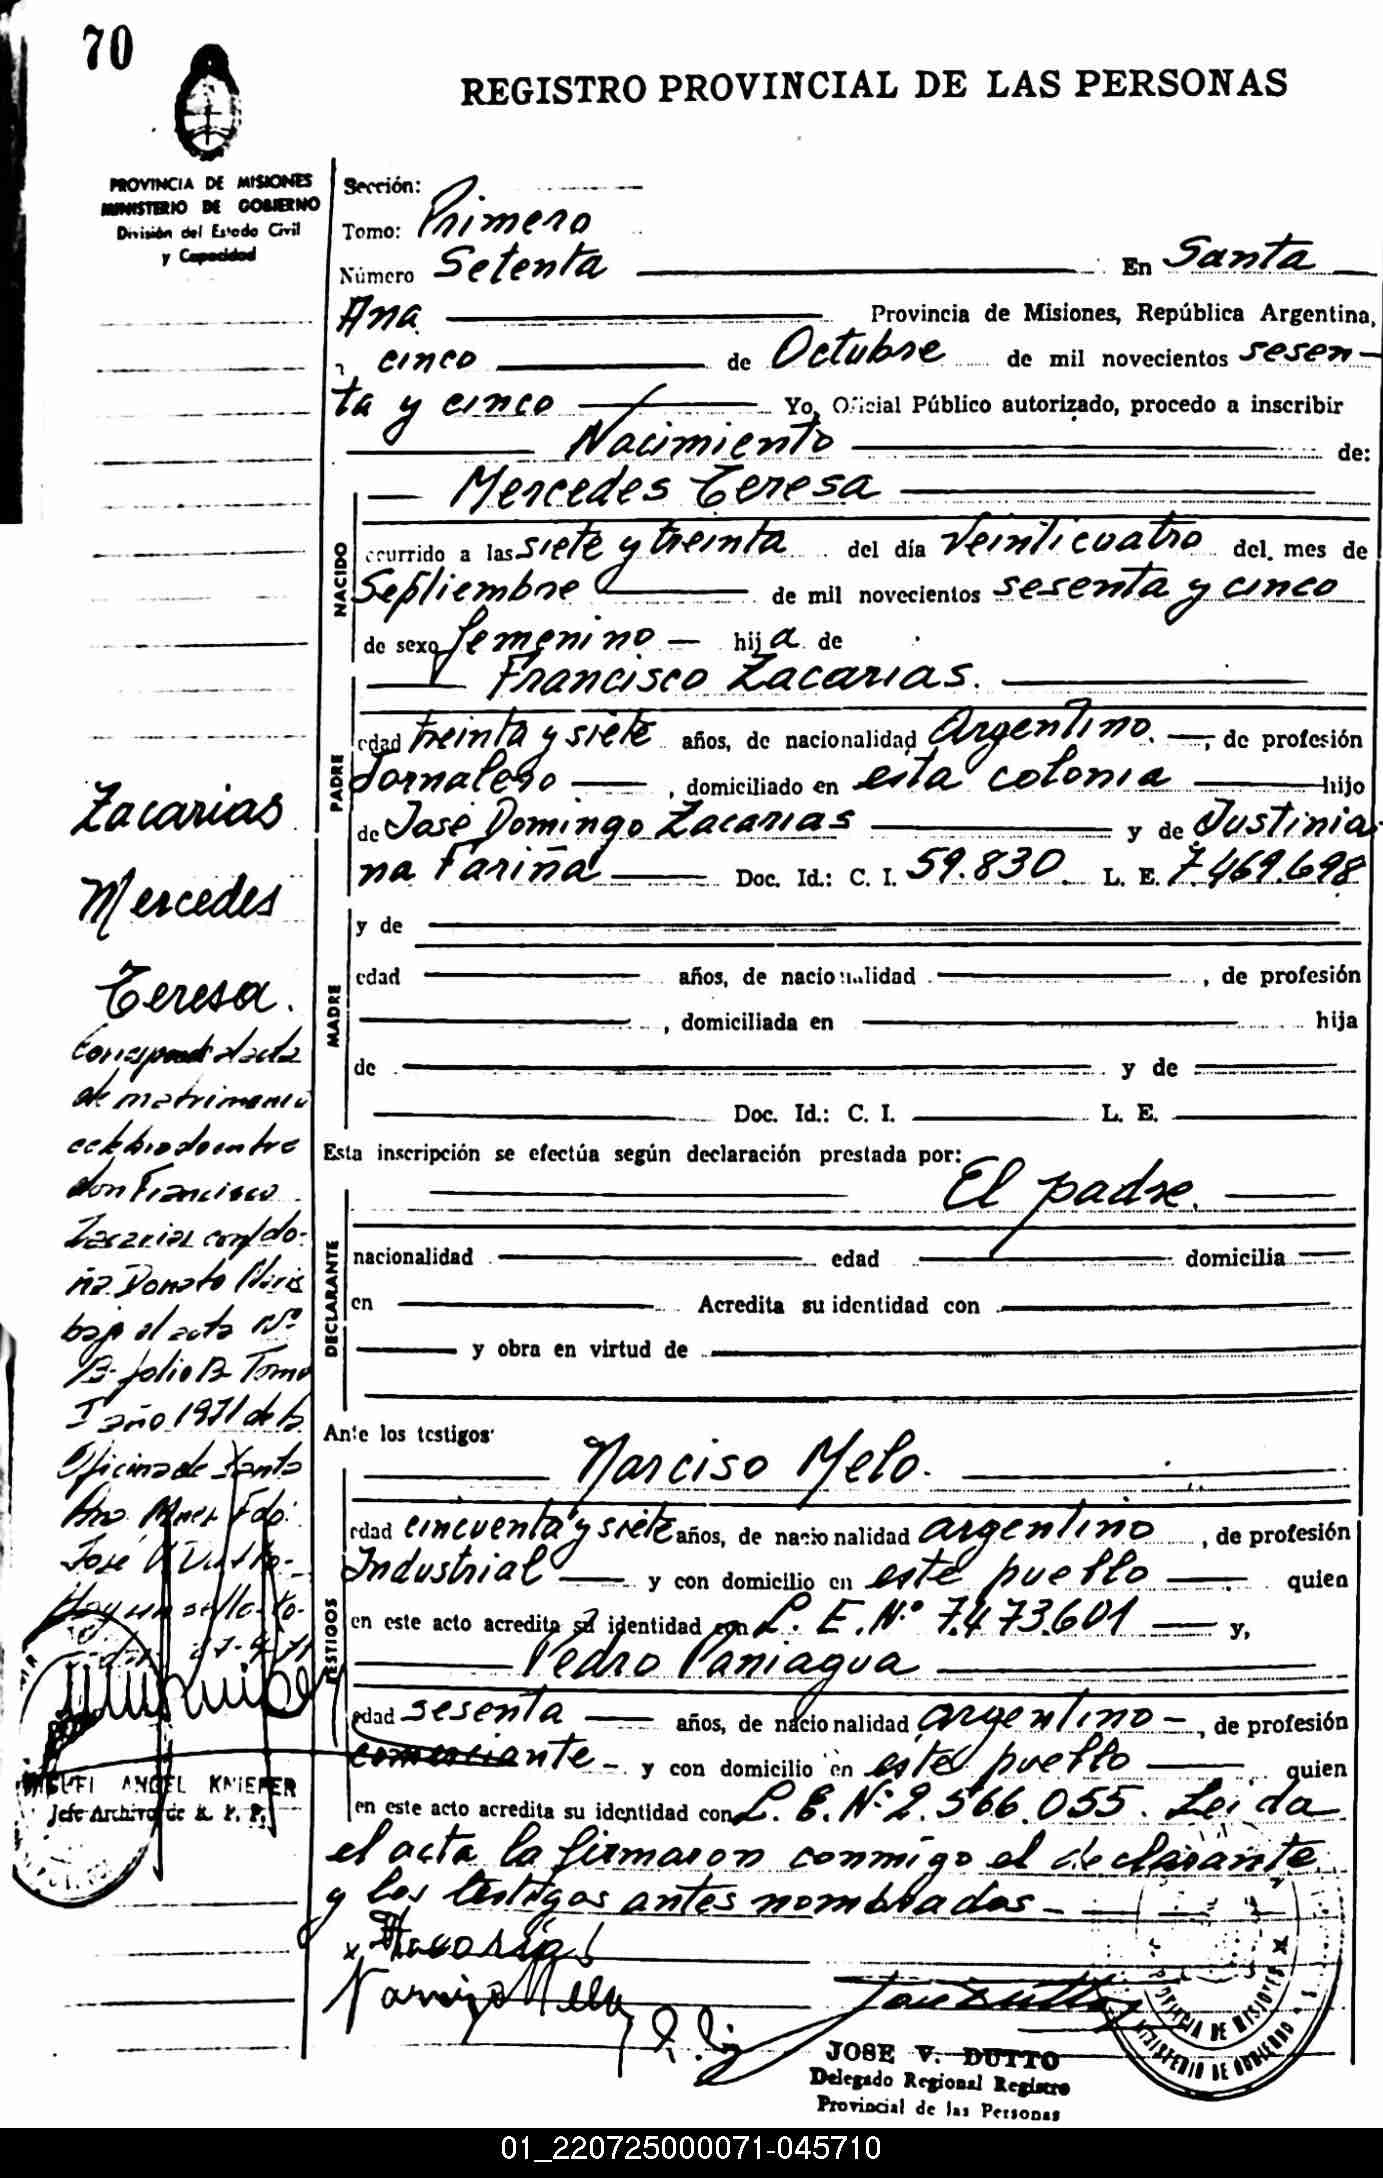 70
REGISTRO PROVINCIAL DE LAS PERSONAS
PROVINCIA DE MISIONES
MINISTERIO DE GOBIERNO
División del Estado Civil
y Capacidad
Sección:
Tomo: Primero
Número Setenta En Santa
Ana Provincia de Misiones, República Argentina,
cinco de Octubre de mil novecientos sesen-
ta y cinco Yo, Oficial Público autorizado, procedo a inscribir
Nacimiento de:
Mercedes Teresa
NACIDO
ocurrido a las siete y treinta del día Veinticuatro del mes de
Septiembre de mil novecientos sesenta y cinco
de sexo femenino - hija de
Francisco Zacarias.
PADRE
edad treinta y siete años, de nacionalidad Argentino. , de profesión
Jornalero , domiciliado en esta colonia hijo
de José Domingo Zacarias y de Justinia
na Fariña Doc. Id.: C. I. 59.830. L. E. 7.469.698
MADRE
y de
edad años, de nacionalidad , de profesión
, domiciliada en hija
de y de
Doc. Id.: C. I. L. E.
Esta inscripción se efectúa según declaración prestada por:
El padre.
DECLARANTE
nacionalidad edad domicilia
en Acredita su identidad con
y obra en virtud de
Ante los testigos
Narciso Melo.
TESTIGOS
edad cincuenta y siete años, de nacionalidad argentino , de profesión
Industrial y con domicilio en este pueblo quien
en este acto acredita su identidad con L. E. Nº 7.473.601 y,
Pedro Paniagua
edad sesenta años, de nacionalidad argentino - , de profesión
comerciante - y con domicilio en este pueblo quien
en este acto acredita su identidad con L. E. Nº 2.566.055. Leida
el acta la firmaron conmigo el declarante
y los testigos antes nombrados -
Zacarias
Mercedes
Teresa.
Corresponde al acta
de matrimonio
celebrado entre
don Francisco
Zacarias con do-
ña Donato
bajo el acta Nº
13- folio 13 Tomo
I año 1971 de la
Oficina de Santa
Ana Fdo:
José V. Dutto-
Hay un sello
MIGUEL ANGEL KNIEPER
Jefe Archivo de R. P. P.
JOSE V. DUTTO
Delegado Regional Registro
Provincial de las Personas
PROVINCIA DE MISIONES
MINISTERIO DE GOBIERNO
01_220725000071-045710